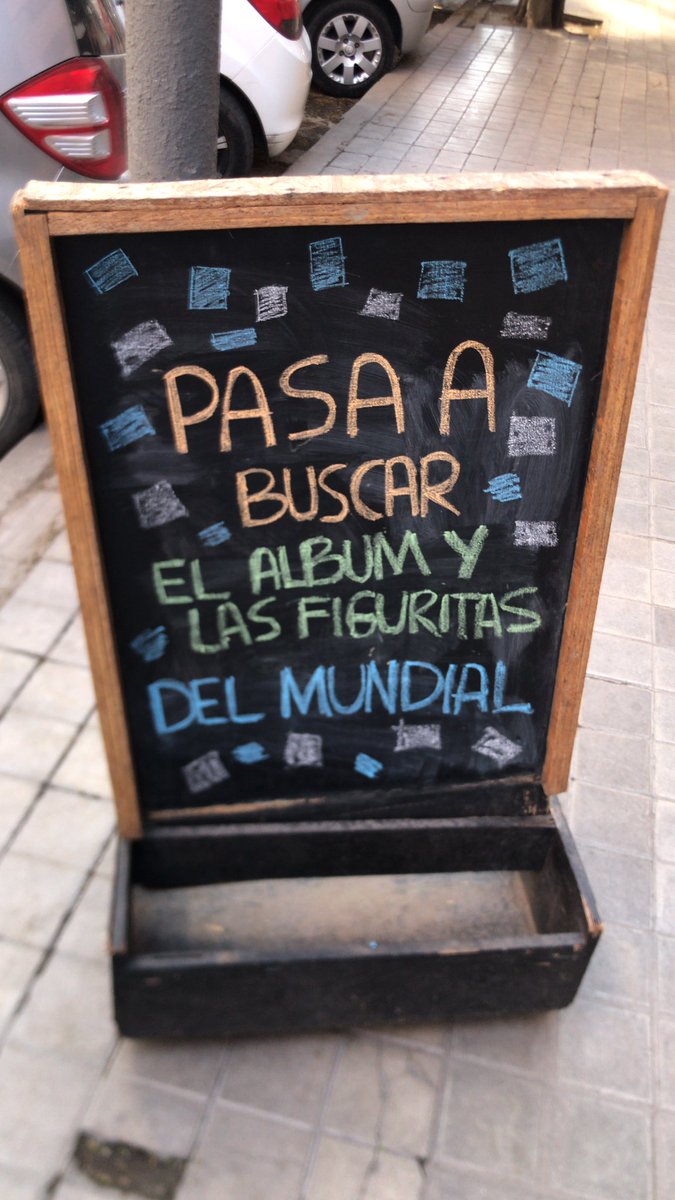 PASA A
BUSCAR
EL ALBUM Y
LAS FIGURITAS
DEL MUNDIAL